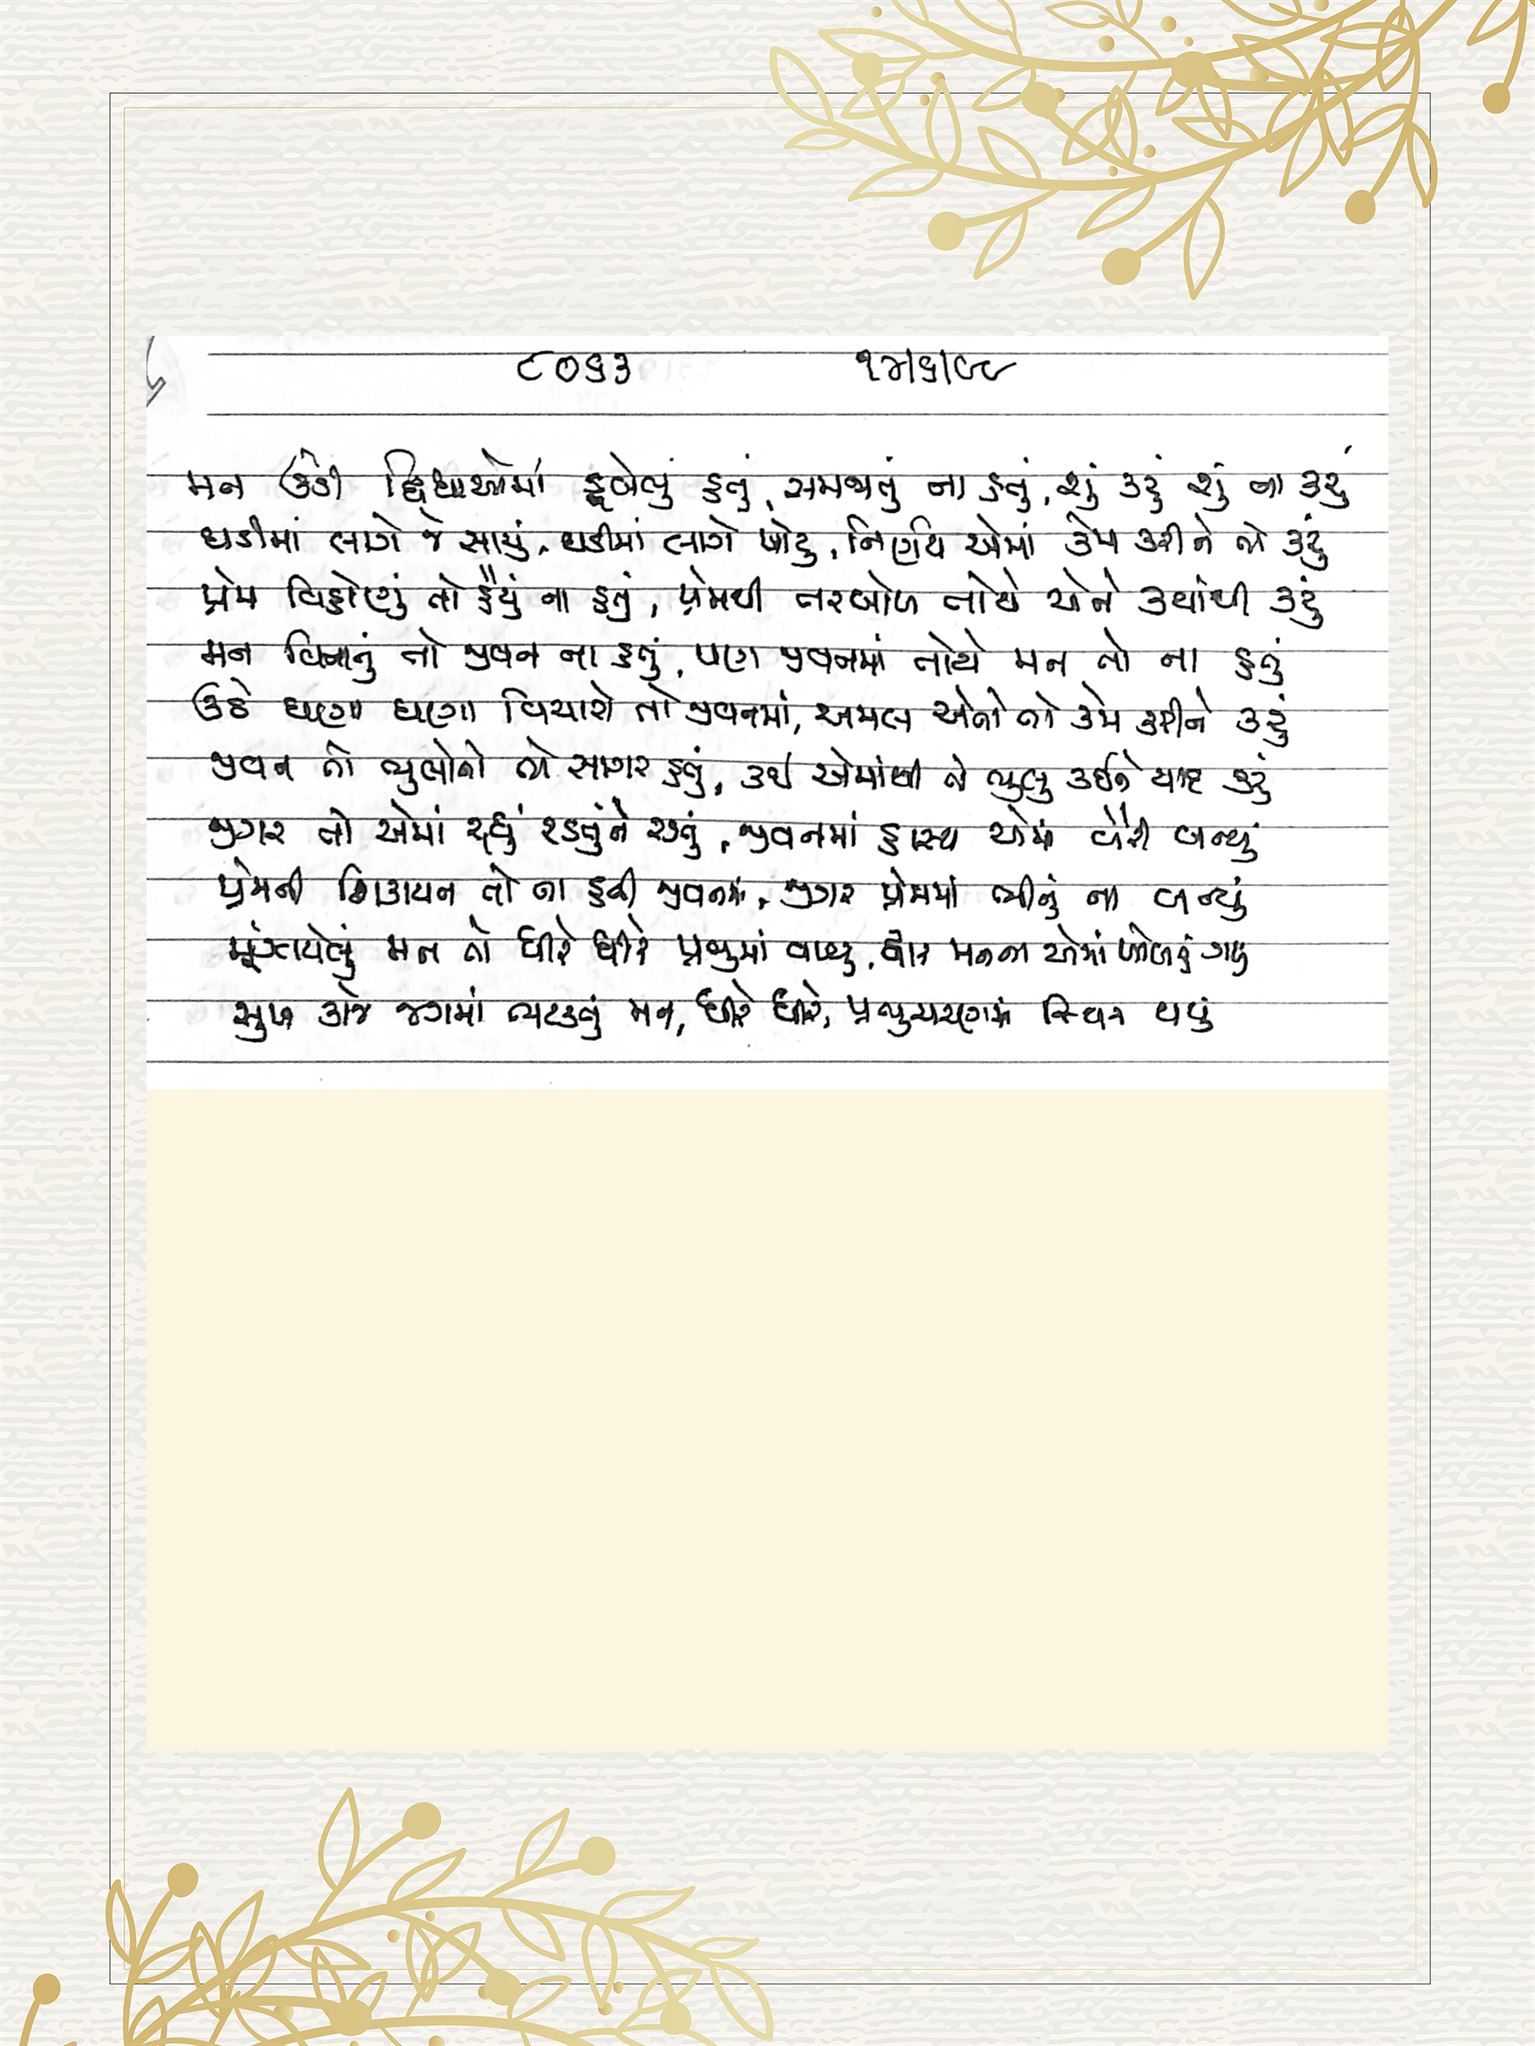 ૮૦૬૩ ૧૪/૬/૯૯
મન ઊંડી દ્વિધાઓમાં ડૂબેલું હતું, સમજાતું ના હતું, શું કરું શું ના કરું
ઘડીમાં લાગે જે સાચું, ઘડીમાં લાગે ખોટું, નિર્ણય એમાં કેમ કરીને તો કરું
પ્રેમ વિહોણું તો હૈયું ના હતું, પ્રેમથી તરબોળ તોયે એને ક્યાંથી કરું
મન વિનાનું તો જીવન ના હતું, પણ જીવનમાં તોયે મન તો ના હતું
ઊઠે ઘણા ઘણા વિચારો તો જીવનમાં, અમલ એનો તો કેમ કરીને કરું
જીવન તો ભુલોનો તો સાગર હતું, કઈ એમાંથી તો ભુલુ કઈને યાદ કરું
જીગર તો એમાં રહ્યું રડતુંને રડતું, જીવનમાં હાસ્ય એમાં વૈરી બન્યું
પ્રેમની શિકાયત તો ના હતી જીવનમાં, જીગર પ્રેમમાં ભીનું ના બન્યું
મૂંઝાયેલું મન તો ધીરે ધીરે પ્રભુમાં વાળ્યુ, જોર મનના એમાં
સુખ કાજે જગમાં ભટકતું મન, ધીરે ધીરે, પ્રભુચરણમાં સ્થિર થયું